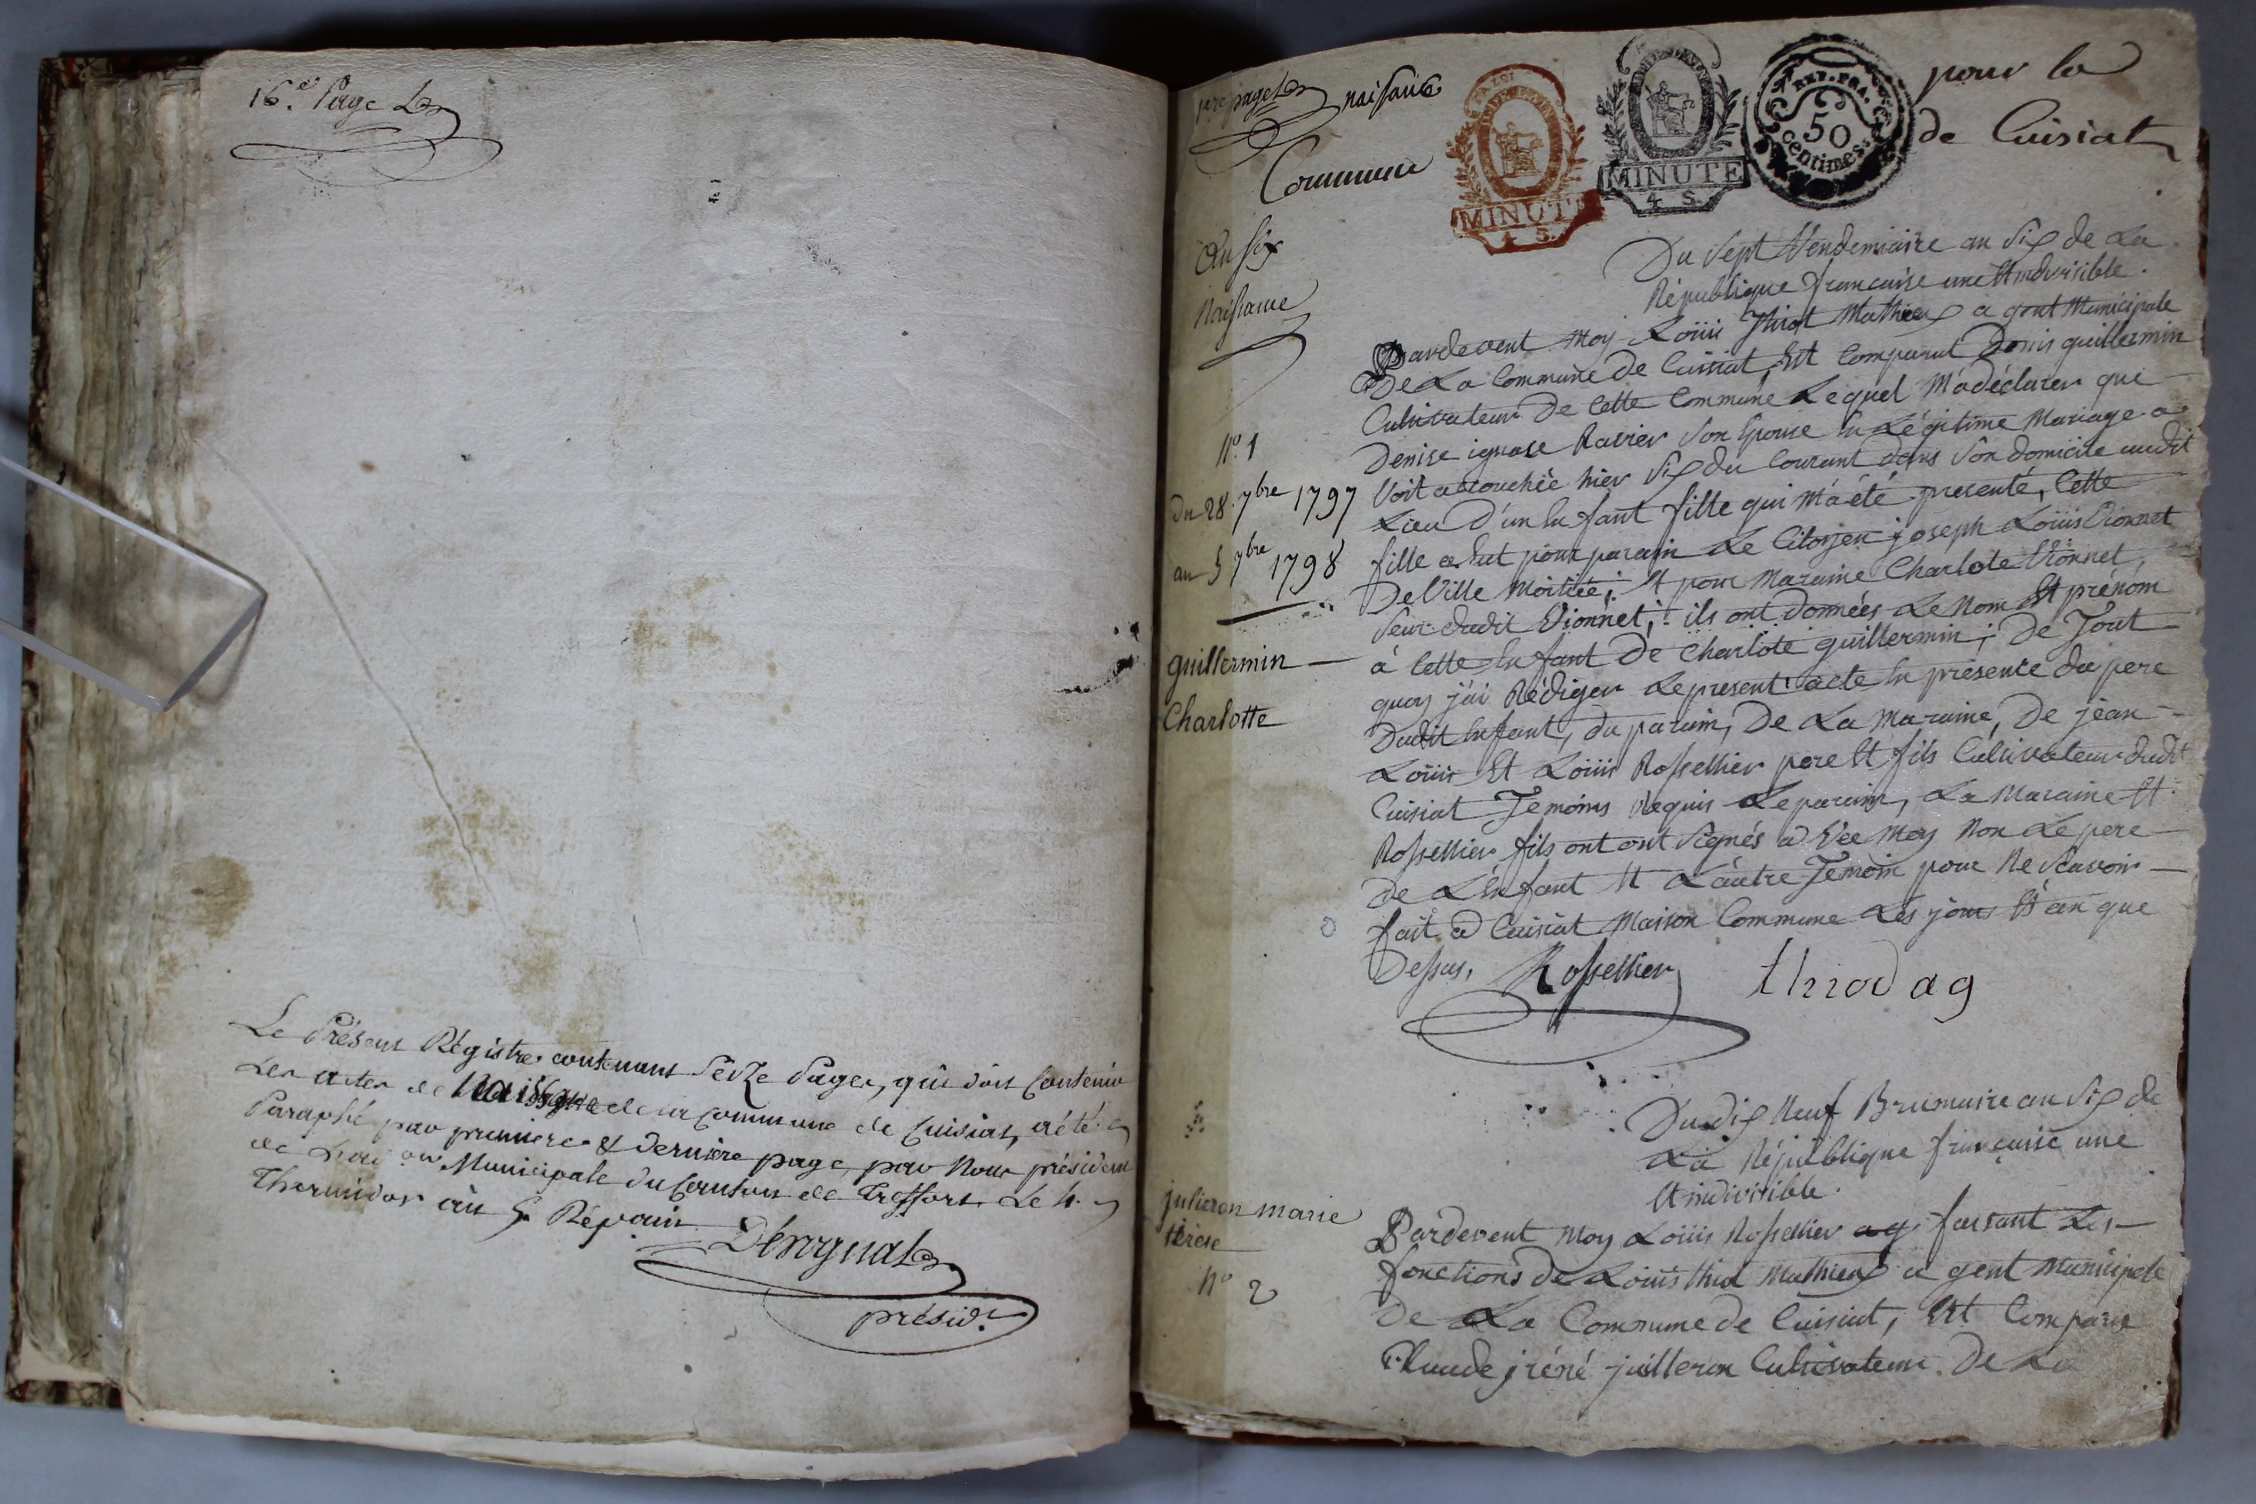 16.e Page
Le Présent Régistre contenant Seize Pages, qui doit Contenir
Les actes de Naissance de la commune de Cuisiat, a été
Paraphé par premiere & derniere page, par Nous président
de L'ad.on Municipale du Canton de Treffort Le 4.
Thermidor an 5. Répain
présid.t
pre page naissance pour la
Commune de Cuisiat
REP. FRA.
50
Centimes
MINUTE
4 S.
MINUTE
4 S.
An Six
Naissance
Du Sept Vendemiaire an Six de La
République francaise une Et indivisible.
Pardevent Moy Loüis Thiod Mathieu a gent Municipale
De La Commune de Cuisiat, Est Comparut Denis guillermin
Cultivateur De Cette Commune Lequel M'a déclarer que
Denise ignase Ravier Son Epouse En Légitime Mariage a
Voit accouchée hier Six du Courant dans Son domicile audit
Lieu D'un Enfant fille qui M'a été presenté, Cette
fille a Eut pour parain Le Citoyen joseph Loüis Vionnet
De Ville Moitiée; Et pour Maraine Charlote Vionnet,
Seur dudit Vionnet; ils ont données Le Nom Et prénom
à Cette Enfant De Charlote guillermin; De Tout
quoy j'ai Rédiger Le present acte En présence du pere
Dudit Enfant, du parain, De La Maraine, De jean
Loüis Et Loüis Rossellier pere Et fils Cultivateur dudit
Cuisiat Temoins Requis Le parain, La Maraine Et
Rossellier fils ont ont Signés a Vec Moy Non Le pere
De L'Enfant Et L'autre Temoin pour Ne Scavoir
fait a Cuisiat Maison Commune Les jour Et an que
Dessus,
Rossellier thiod ag
N.o 1
du 28. 7bre 1797
au 5 7bre 1798
guillermin
Charlotte
Du dix Neuf Brumaire an Six de
La République francaise une
Et indivisible.
julieron marie
térèse
N.o 2
Pardevent Moy Loüis Rossellier ag faisant Les
fonctions de Loüis thiod Mathieu a gent Municipale
De La Commune de Cuisiat, Est Comparu
Claude jréné juilleron Cultivateur De La